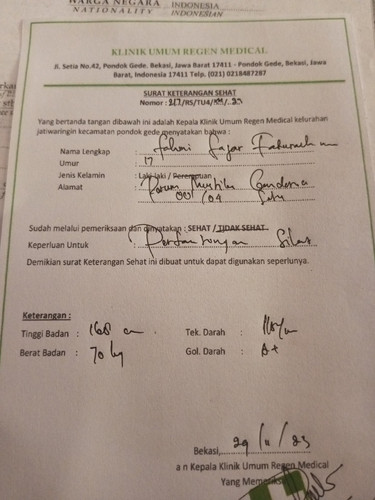 WARGA NEGARA : INDONESIA
NATIONALITY INDONESIAN
KLINIK UMUM REGEN MEDICAL
Jl. Setia No.42, Pondok Gede. Bekasi, Jawa Barat 17411 - Pondok Gede, Bekasi, Jawa
Barat, Indonesia 17411 Telp. (021) 0218487287
SURAT KETERANGAN SEHAT
Nomor : /RS/TU4/KM/
Yang bertanda tangan dibawah ini adalah Kepala Klinik Umum Regen Medical kelurahan
jatiwaringin kecamatan pondok gede menyatakan bahwa :
Nama Lengkap : Fahri Fajar
Umur : 17
Jenis Kelamin : Laki-laki / Perempuan
Alamat : Mustika
001/04
Sudah melalui pemeriksaan dan dinyatakan : SEHAT / TIDAK SEHAT
Keperluan Untuk : Pertandingan Silat
Demikian surat Keterangan Sehat ini dibuat untuk dapat digunakan seperlunya.
Keterangan :
Tinggi Badan : 168 cm Tek. Darah :
Berat Badan : 70 kg Gol. Darah :
Bekasi, 29/11/23
a n Kepala Klinik Umum Regen Medical
Yang Memeriksa